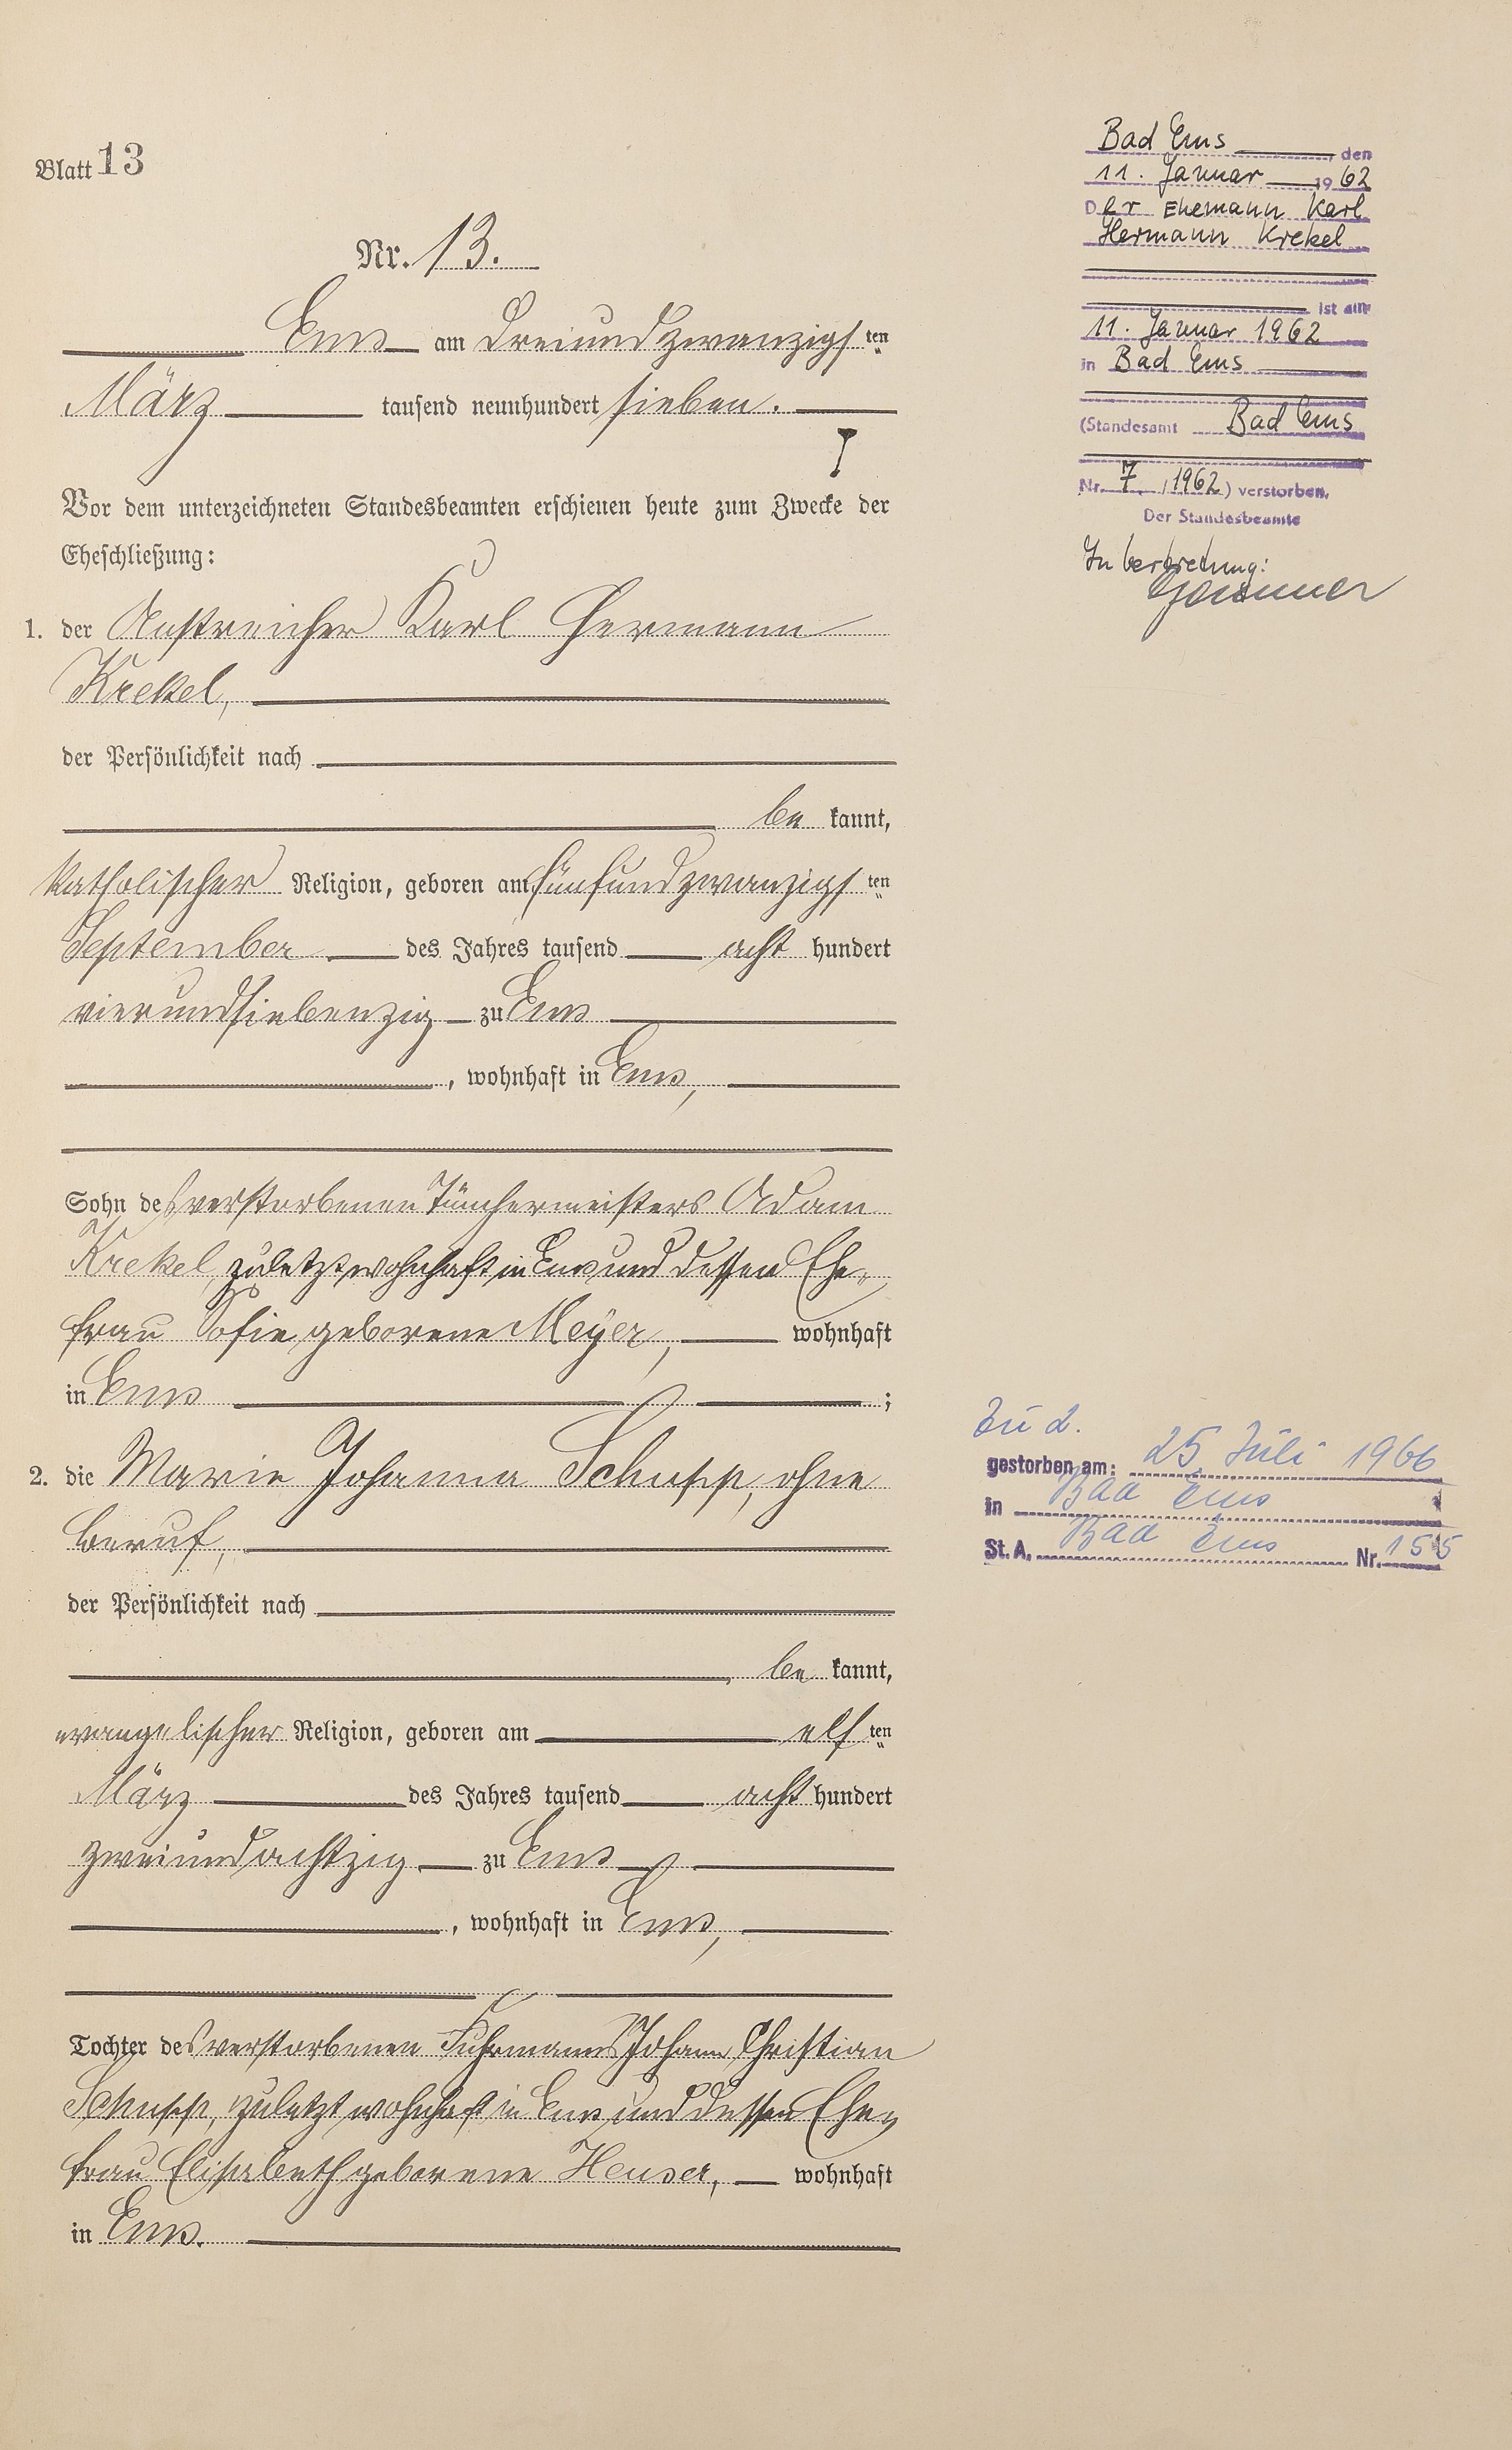 Blatt 13
Nr. 13.
Ems am dreiundzwanzigs ten
März tausend neunhundert sieben.
Vor dem unterzeichneten Standesbeamten erschienen heute zum Zwecke der
Eheschließung:
1. der Anstreicher Karl Hermann
Krekel,
der Persönlichkeit nach
be kannt,
katholischer Religion, geboren am fünfundzwanzigs ten
September des Jahres tausend acht hundert
vierundsiebenzig zu Ems
, wohnhaft in Ems,
Sohn des verstorbenen Tünchermeisters Adam
Krekel, zuletzt wohnhaft in Ems und dessen Ehe-
frau Sofie geborene Meÿer, wohnhaft
in Ems ;
2. die Marie Johanna Schupp, ohne
Beruf,
der Persönlichkeit nach
, be kannt,
evangelischer Religion, geboren am elf ten
März des Jahres tausend acht hundert
zweiundachtzig zu Ems
, wohnhaft in Ems,
Tochter des verstorbenen Fuhrmanns Johann Christian
Schupp, zuletzt wohnhaft in Ems und dessen Ehe-
frau Elisabeth geborene Heuser, wohnhaft
in Ems.
Bad Ems, den
11. Januar 1962
Der Ehemann Karl
Hermann Krekel
ist am
11. Januar 1962
in Bad Ems
(Standesamt Bad Ems
Nr. 7 /1962) verstorben.
Der Standesbeamte
In Vertretung:
Zu 2.
gestorben am: 25. Juli 1966
in Bad Ems
St. A. Bad Ems Nr. 155